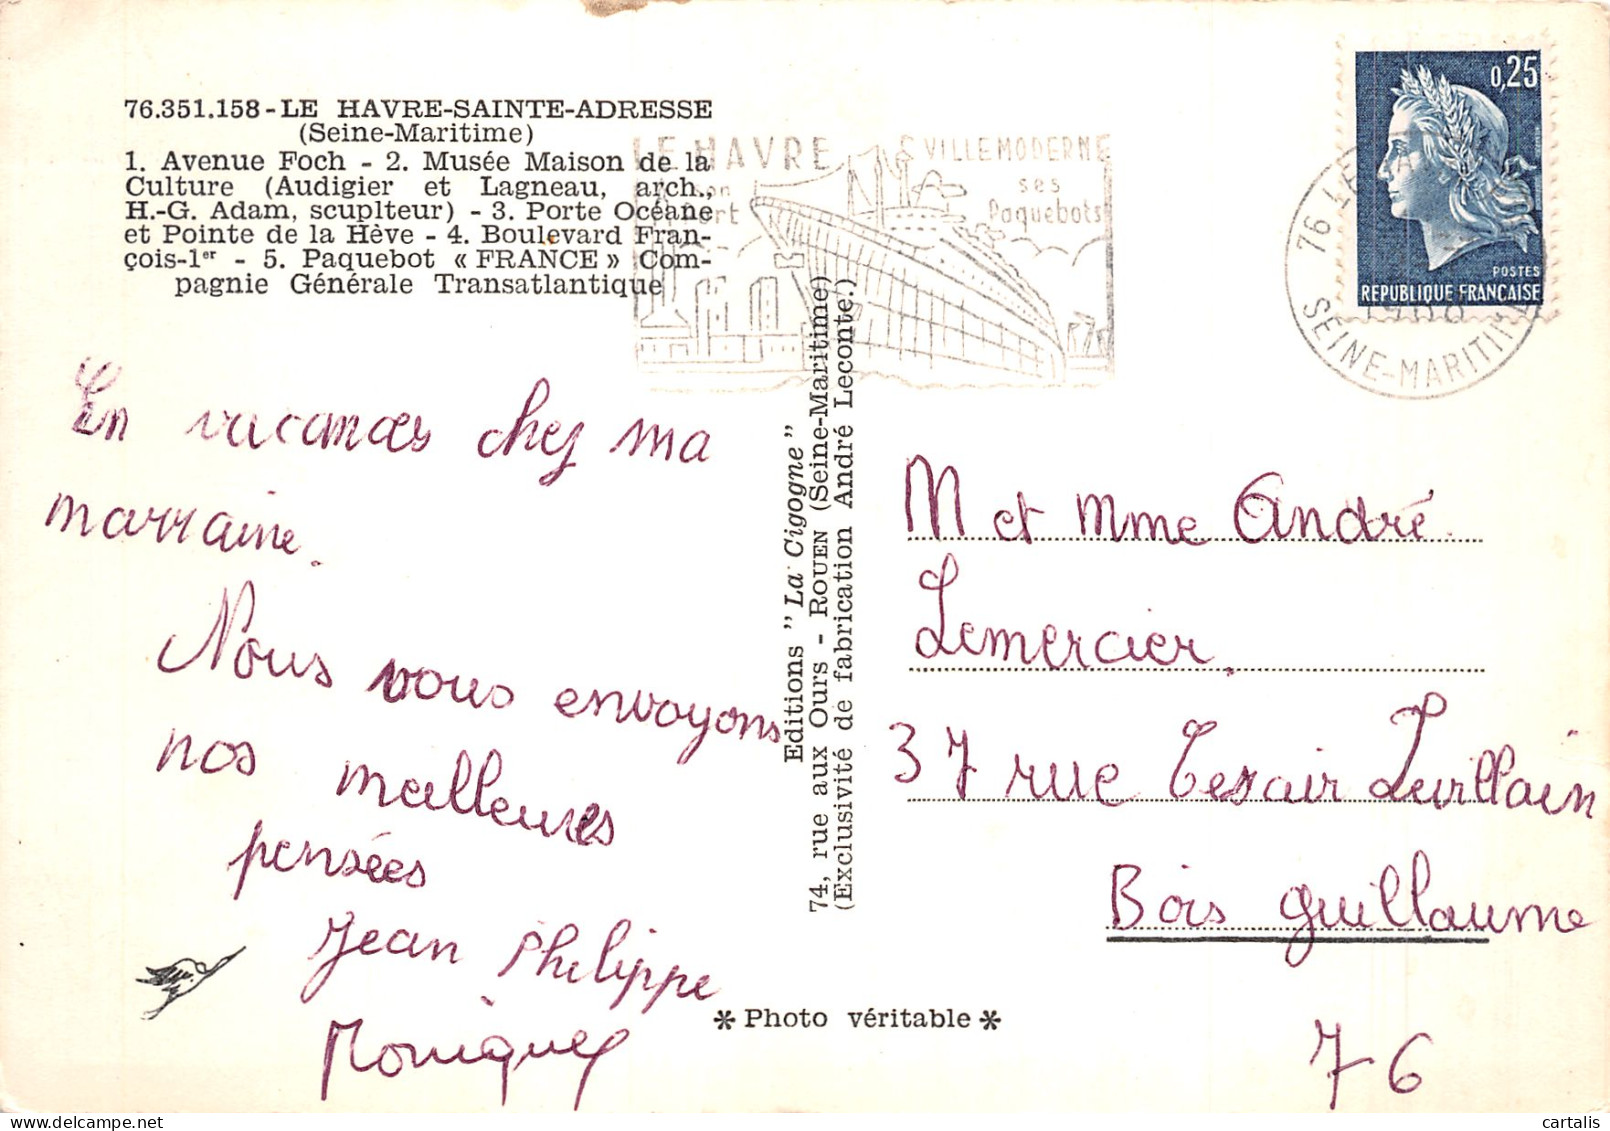 76.351.158 - LE HAVRE-SAINTE-ADRESSE
(Seine-Maritime)
1. Avenue Foch - 2. Musée Maison de la
Culture (Audigier et Lagneau, arch.,
H.-G. Adam, scuplteur) - 3. Porte Océane
et Pointe de la Hève - 4. Boulevard Fran-
çois-1er - 5. Paquebot « FRANCE » Com-
pagnie Générale Transatlantique
LE HAVRE
son
Port
VILLE MODERNE
ses
Paquebots
0,25
POSTES
REPUBLIQUE FRANÇAISE
76 LE
SEINE-MARITIME
En vacances chez ma
marraine.
Nous vous envoyons
nos meilleures
pensées
Jean Philippe
Monique
Editions " La Cigogne "
74, rue aux Ours - ROUEN (Seine-Maritime)
(Exclusivité de fabrication André Leconte.)
M et Mme André
Lemercier.
37 rue Cesair Levillain
Bois Guillaume
76
* Photo véritable *
cartalis